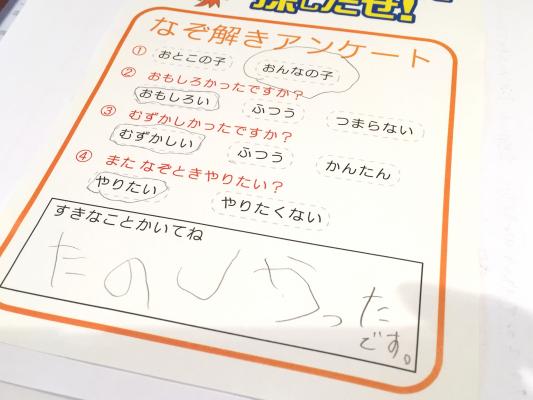 探しだせ!
なぞ解きアンケート
① おとこの子 おんなの子
② おもしろかったですか?
おもしろい ふつう つまらない
③ むずかしかったですか?
むずかしい ふつう かんたん
④ また なぞときやりたい?
やりたい やりたくない
すきなことかいてね
たのしかった
です。